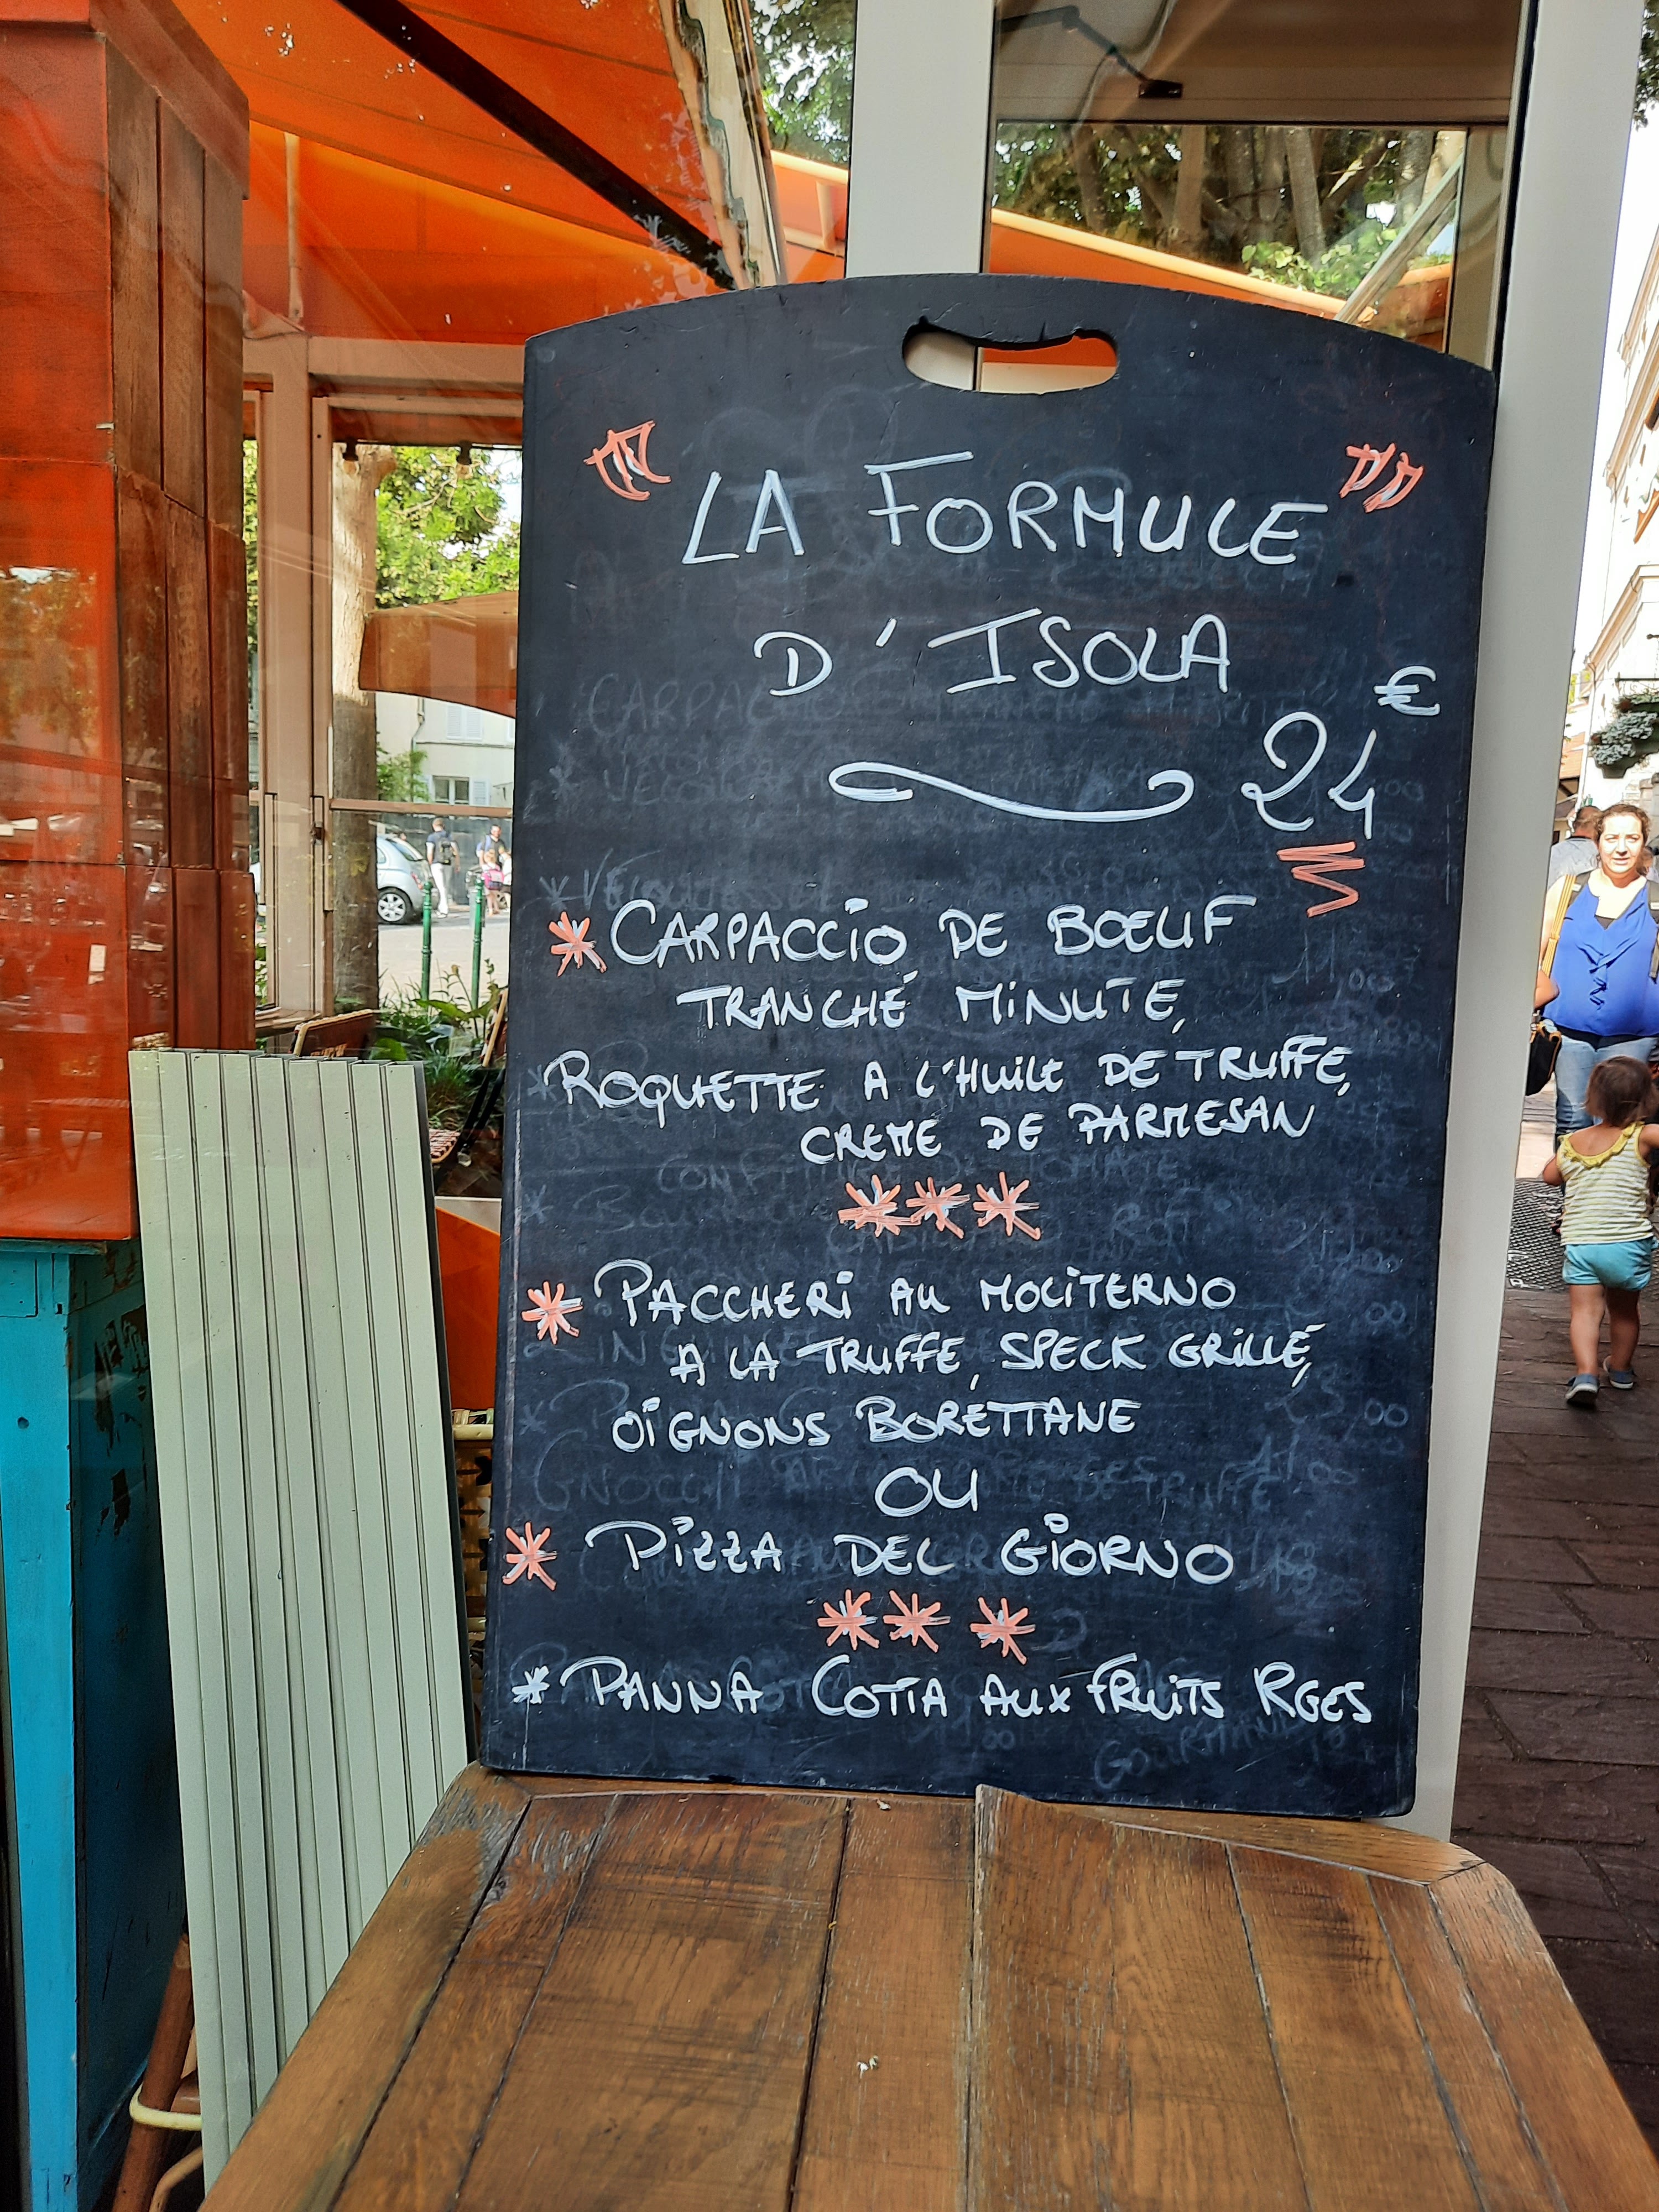 " LA FORMULE "
D'ISOLA
24 €
* CARPACCIO DE BŒUF
TRANCHÉ MINUTE,
ROQUETTE A L'HUILE DE TRUFFE,
CREME DE PARMESAN
***
* PACCHERI AU MOLITERNO
A LA TRUFFE, SPECK GRILLÉ,
OIGNONS BORETTANE
OU
* PIZZA DEL GIORNO
***
* PANNA COTTA AUX FRUITS RGES